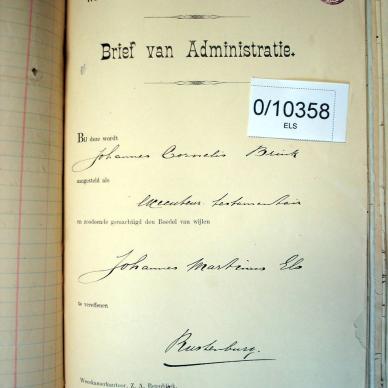 Brief van Administratie.
0/10358
ELS
Bij deze wordt
Johannes Cornelis Brink
aangesteld als
Executeur testamentair
en zoodoende gemachtigd den Boedel van wijlen
Johannes Martinus Els
te vereffenen
Rustenburg.
Weeskamerkantoor, Z. A. Republiek,